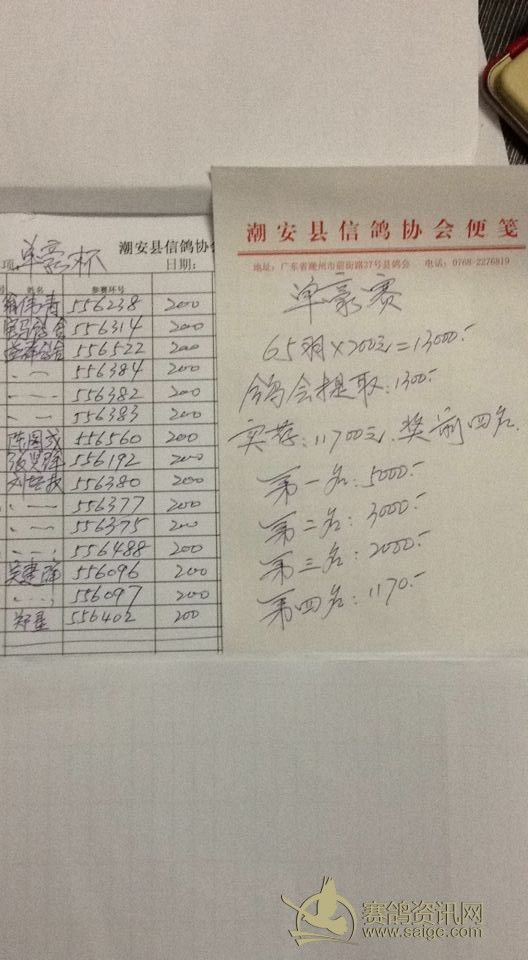 潮安县信鸽协会
项 单豪杯 日期:
号 姓名 参赛环号
伟青 556238 200
宝马鸽舍 556314 200
鸽舍 556522 200
〃 — 556384 200
〃 — 556382 200
〃 — 556383 200
陈国武 556560 200
张贤强 556192 200
556380 200
〃 — 556377 200
〃 — 556375 200
〃 — 556488 200
吴建 556096 200
〃 — 556097 200
郑星 556402 200
潮安县信鸽协会便笺
地址:广东省潮州市前街路37号县鸽会 电话:0768-2276819
单豪赛
65羽×200元=13000.-
鸽会提取:1300.-
实存:11700元.奖前四名.
第一名:5000.-
第二名:3000.-
第三名:2000.-
第四名:1170.-
赛鸽资讯网
www.saige.com